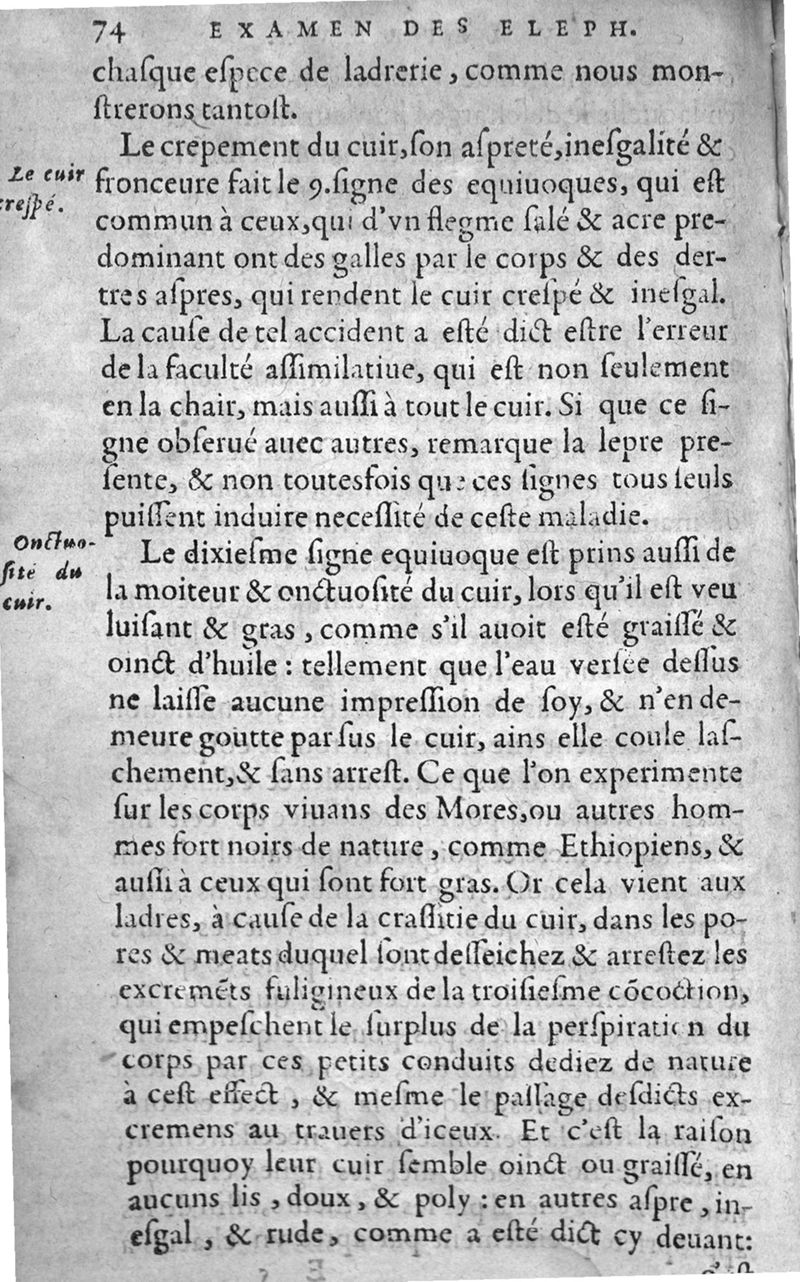 74 EXAMEN DES ELEPH.
chaſque eſpece de ladrerie, comme nous mon-
ſtrerons tantoſt.
Le crepement du cuir, ſon aſpreté, ineſgalité &
Le cuir
creſpé.
fronceure fait le 9. ſigne des equiuoques, qui eſt
commun à ceux, qui d'vn flegme ſalé & acre pre-
dominant ont des galles par le corps & des der-
tres aſpres, qui rendent le cuir creſpé & ineſgal.
La cauſe de tel accident a eſté dict eſtre l'erreur
de la faculté aſſimilatiue, qui eſt non ſeulement
en la chair, mais auſſi à tout le cuir. Si que ce ſi-
gne obſerué auec autres, remarque la lepre pre-
ſente, & non toutesfois que ces ſignes tous ſeuls
puiſſent induire neceſſité de ceſte maladie.
Onctuo-
ſité du
cuir.
Le dixieſme ſigne equiuoque eſt prins auſſi de
la moiteur & onctuoſité du cuir, lors qu'il eſt veu
luiſant & gras, comme s'il auoit eſté graiſſé &
oinct d'huile : tellement que l'eau verſée deſſus
ne laiſſe aucune impreſſion de ſoy, & n'en de-
meure goutte par ſus le cuir, ains elle coule laſ-
chement, & ſans arreſt. Ce que l'on experimente
ſur les corps viuans des Mores, ou autres hom-
mes fort noirs de nature, comme Ethiopiens, &
auſſi à ceux qui ſont fort gras. Or cela vient aux
ladres, à cauſe de la craſſitie du cuir, dans les po-
res & meats duquel ſont deſſeichez & arreſtez les
excremẽts fuligineux de la troiſieſme cõcoction,
qui empeſchent le ſurplus de la perſpiration du
corps par ces petits conduits dediez de nature
à ceſt effect, & meſme le paſſage deſdicts ex-
cremens au trauers d'iceux. Et c'eſt la raiſon
pourquoy leur cuir ſemble oinct ou graiſſé, en
aucuns lis, doux, & poly : en autres aſpre, in-
eſgal, & rude, comme a eſté dict cy deuant: